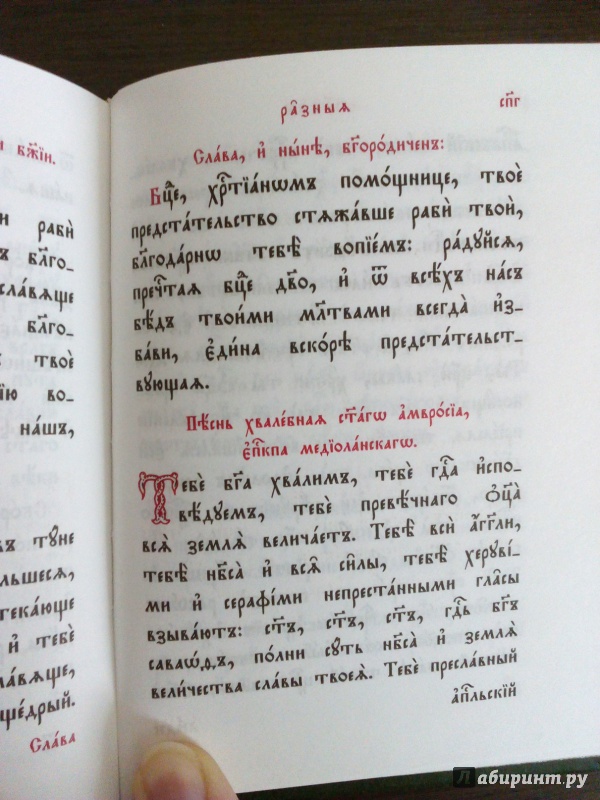 и бж҃їи.
и раби̑
ъ бл҃го_
сла́вѧще
бл҃го_
ъ твоѐ
їю во_
на́шъ,
въ тꙋ́не
льшесѧ,
текающе
и̑ тебѐ
сла́вѧще,
ще́дрый.
Сла́ва
ра̑зныѧ
сп҃г
Сла́ва, и҆ ны́нѣ, бг҃оро́диченъ:
Бц҃е, хрⷭ҇тїа́нѡмъ помо́щнице, твоѐ
предста́тельство стѧжа́вше рабѝ твоѝ,
бл҃года́рнѡ тебѣ̀ вопїе́мъ: ра́дꙋйсѧ,
пречⷭ҇таѧ бц҃е дв҃о, и҆ ѿ всѣ́хъ на́съ
бѣ́дъ твои́ми мл҃твами всегда̀ и҆з_
ба́ви, є҆ди́на вско́рѣ предста́тельст_
вꙋющаѧ.
Пѣ́снь хвале́бнаѧ ст҃а́гѡ а҆мвро́сїа,
є҆пⷭ҇кпа медїола́нскагѡ.
Тебѐ бг҃а хва́лимъ, тебѐ гдⷭ҇а и҆спо_
вѣ́дꙋемъ, тебѐ превѣ́чнаго ѻ҆ц҃а̀
всѧ̀ землѧ̀ велича́етъ. Тебѣ̀ всѝ а҆́гг҃ли,
тебѣ̀ нб҃са̀ и҆ всѧ̑ си̑лы, тебѣ̀ херꙋві́_
ми и҆ серафі́ми непреста́нными гла́сы
взыва́ютъ: ст҃ъ, ст҃ъ, ст҃ъ, гдⷭ҇ь бг҃ъ
саваѡ́ѳъ, по́лни сꙋ́ть нб҃са̀ и҆ землѧ̀
вели́чества сла́вы твоеѧ̀. Тебѐ пресла́вный
а҆пⷭ҇льскїй
лабиринт.ру